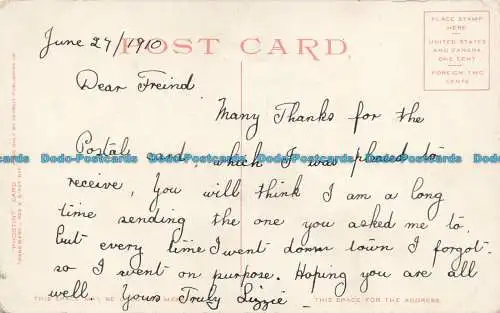 June 27/1910
POST CARD
PLACE STAMP
HERE
UNITED STATES
AND CANADA
ONE CENT
FOREIGN TWO
CENTS
Dear Freind.
Many Thanks for the
Postal card, which I was pleased to
Dodo-Postcards Dodo-Postcards Dodo-Postcards Dodo-Postcards Dodo-Postcards
receive, You will think I am a long
time sending the one you asked me to,
but every time I went down town I forgot
so I went on purpose. Hoping you are all
well. Yours Truly Lizzie
THIS SPACE FOR THE ADDRESS